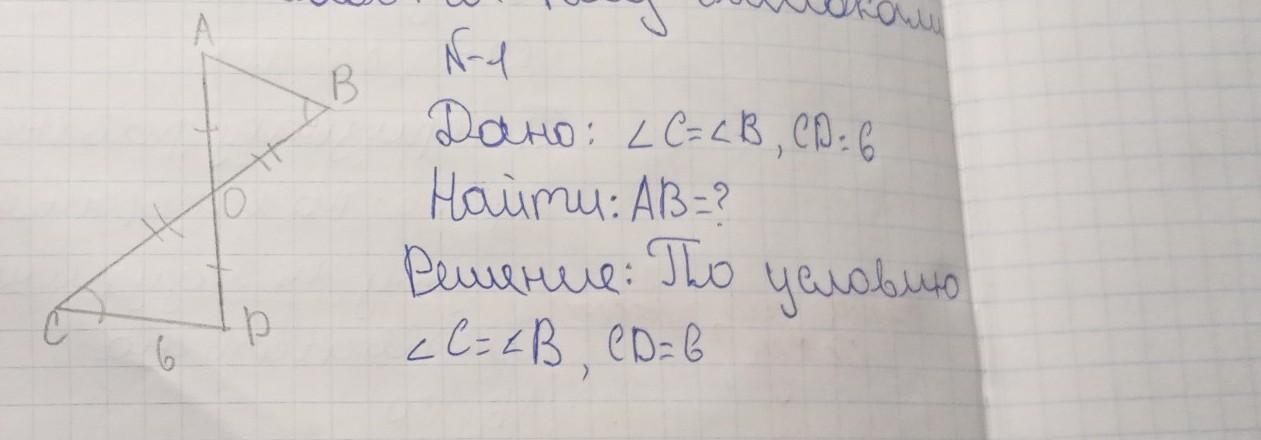 A
B
O
C
D
6
N-1
Дано: ∠C=∠B, CD=6
Найти: AB=?
Решение: По условию
∠C=∠B, CD=6